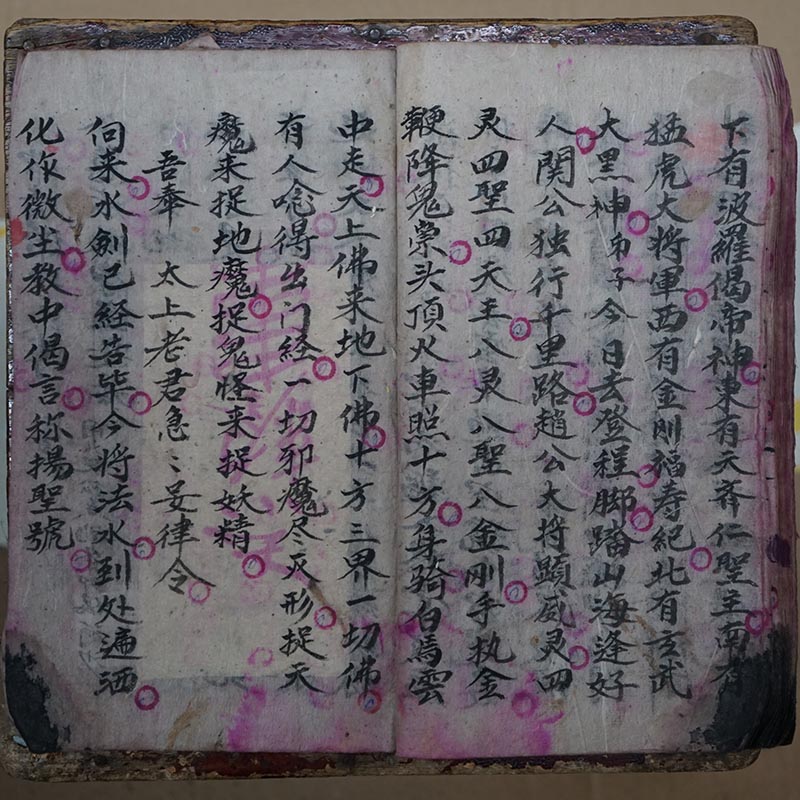 下有波羅偈帝神東有天齐仁聖主南有
猛虎大将軍西有金刚福寿紀北有玄武
大黑神弟子今日去登程脚踏山海逢好
人関公独行千里路趙公大将顕威灵四
灵四聖四天王八灵八聖八金刚手执金
鞭降鬼祟头頂火車照十方身骑白馬雲
中走天上佛来地下佛十方三界一切佛
有人唸得出门経一切邪魔尽灭形捉天
魔来捉地魔捉鬼怪来捉妖精
吾奉 太上老君急〻妄律令
伺来水劍已経告毕今将法水到处遍洒
化作微尘教中偈言称揚聖號